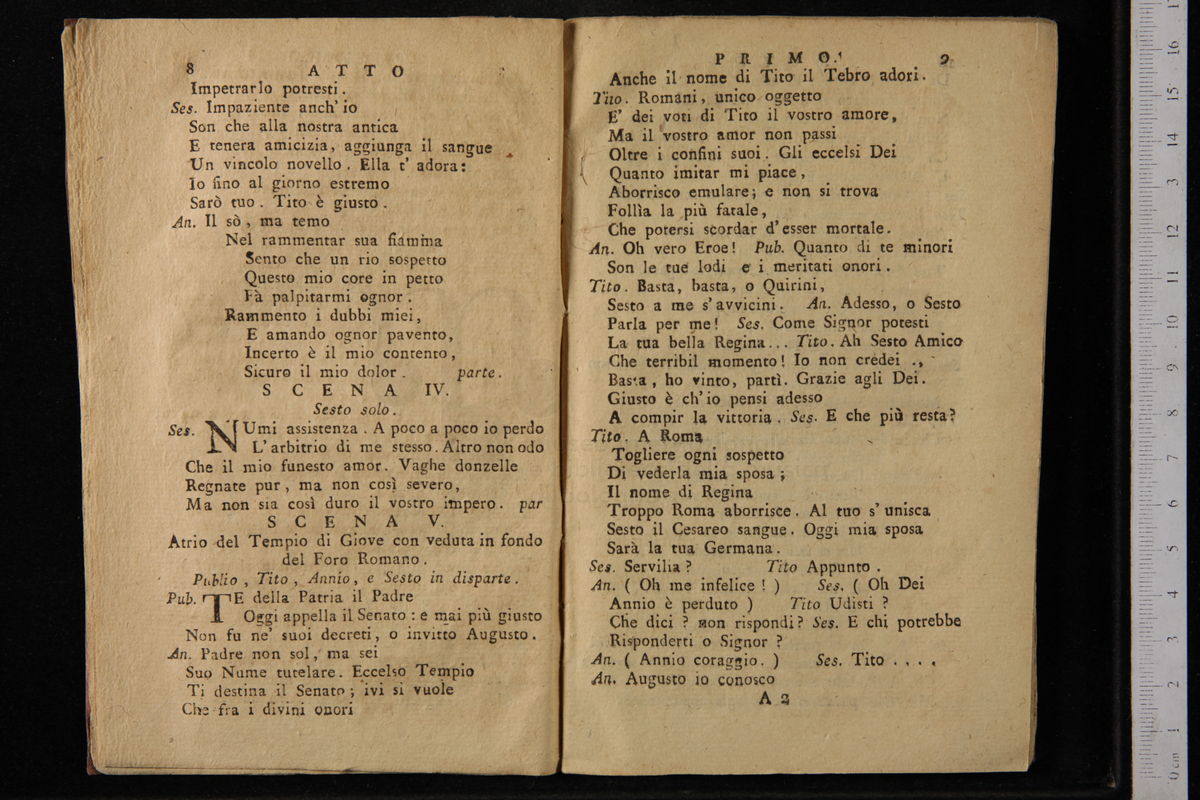 8 ATTO
Impetrarlo potresti.
Ses. Impaziente anch' io
Son che alla nostra antica
E tenera amicizia, aggiunga il sangue
Un vincolo novello. Ella t' adora:
Io fino al giorno estremo
Sarò tuo. Tito è giusto.
An. Il sò, ma temo
Nel rammentar sua fiamma
Sento che un rio sospetto
Questo mio core in petto
Fà palpitarmi ognor.
Rammento i dubbi miei,
E amando ognor pavento,
Incerto è il mio contento,
Sicuro il mio dolor. parte.
SCENA IV.
Sesto solo.
Ses. NUmi assistenza. A poco a poco io perdo
L'arbitrio di me stesso. Altro non odo
Che il mio funesto amor. Vaghe donzelle
Regnate pur, ma non così severo,
Ma non sia così duro il vostro impero. par
SCENA V.
Atrio del Tempio di Giove con veduta in fondo
del Foro Romano.
Publio, Tito, Annio, e Sesto in disparte.
Pub. TE della Patria il Padre
Oggi appella il Senato: e mai più giusto
Non fu ne' suoi decreti, o invitto Augusto.
An. Padre non sol, ma sei
Suo Nume tutelare. Eccelso Tempio
Ti destina il Senato; ivi si vuole
Che fra i divini onori
PRIMO. 9
Anche il nome di Tito il Tebro adori.
Tito. Romani, unico oggetto
E' dei voti di Tito il vostro amore,
Ma il vostro amor non passi
Oltre i confini suoi. Gli eccelsi Dei
Quanto imitar mi piace,
Aborrisco emulare; e non si trova
Follìa la più fatale,
Che potersi scordar d'esser mortale.
An. Oh vero Eroe! Pub. Quanto di te minori
Son le tue lodi e i meritati onori.
Tito. Basta, basta, o Quirini,
Sesto a me s'avvicini. An. Adesso, o Sesto
Parla per me! Ses. Come Signor potesti
La tua bella Regina... Tito. Ah Sesto Amico
Che terribil momento! Io non credei .,
Basta, ho vinto, partì. Grazie agli Dei.
Giusto è ch'io pensi adesso
A compir la vittoria. Ses. E che più resta?
Tito. A Roma
Togliere ogni sospetto
Di vederla mia sposa;
Il nome di Regina
Troppo Roma aborrisce. Al tuo s'unisca
Sesto il Cesareo sangue. Oggi mia sposa
Sarà la tua Germana.
Ses. Servilia? Tito Appunto.
An. (Oh me infelice!) Ses. (Oh Dei
Annio è perduto) Tito Udisti?
Che dici? non rispondi? Ses. E chi potrebbe
Risponderti o Signor?
An. (Annio coraggio.) Ses. Tito ....
An. Augusto io conosco
A 2